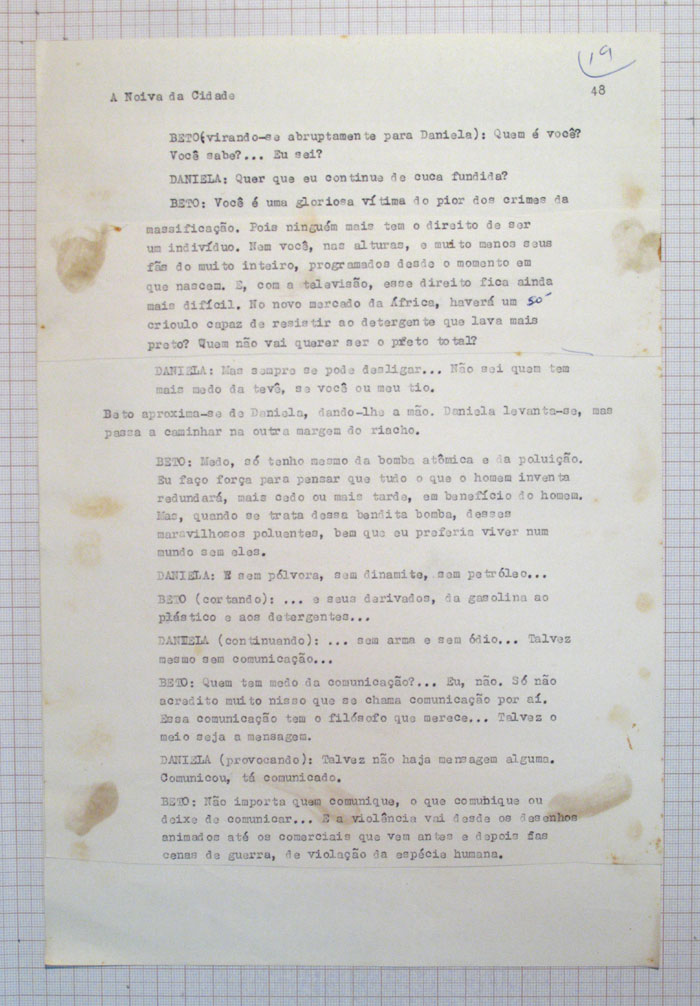 19
48
A Noiva da Cidade
BETO(virando-se abruptamente para Daniela): Quem é você?
Você sabe?... Eu sei?
DANIELA: Quer que eu continue de cuca fundida?
BETO: Você é uma gloriosa vítima do pior dos crimes da
massificação. Pois ninguém mais tem o direito de ser
um indivíduo. Nem você, nas alturas, e muito menos seus
fãs do muito inteiro, programados desde o momento em
que nascem. E, com a televisão, esse direito fica ainda
mais difícil. No novo mercado da África, haverá um só
crioulo capaz de resistir ao detergente que lava mais
preto? Quem não vai querer ser o preto total?
DANIELA: Mas sempre se pode desligar... Não sei quem tem
mais medo da tevê, se você ou meu tio.
Beto aproxima-se de Daniela, dando-lhe a mão. Daniela levanta-se, mas
passa a caminhar na outra margem do riacho.
BETO: Medo, só tenho mesmo da bomba atômica e da poluição.
Eu faço força para pensar que tudo o que o homem inventa
redundará, mais cedo ou mais tarde, em benefício do homem.
Mas, quando se trata dessa bendita bomba, desses
maravilhosos poluentes, bem que eu preferia viver num
mundo sem eles.
DANIELA: E sem pólvora, sem dinamite, sem petróleo...
BETO (cortando): ... e seus derivados, da gasolina ao
plástico e aos detergentes...
DANIELA (continuando): ... sem arma e sem ódio... Talvez
mesmo sem comunicação...
BETO: Quem tem medo da comunicação?... Eu, não. Só não
acredito muito nisso que se chama comunicação por aí.
Essa comunicação tem o filósofo que merece... Talvez o
meio seja a mensagem.
DANIELA (provocando): Talvez não haja mensagem alguma.
Comunicou, tá comunicado.
BETO: Não importa quem comunique, o que comubique ou
deixe de comunicar... E a violência vai desde os desenhos
animados até os comerciais que vem antes e depois fas
cenas de guerra, de violação da espécie humana.